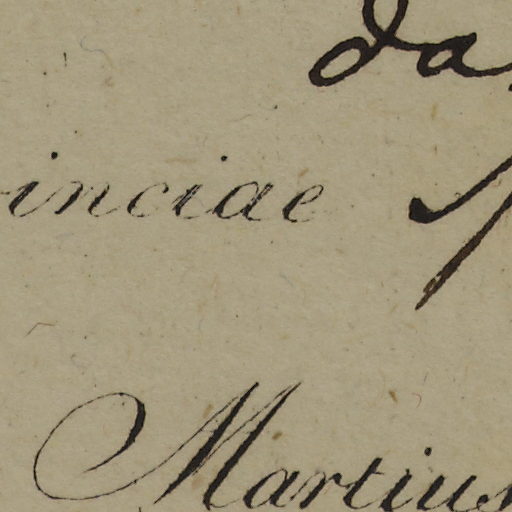 da
inciae
Martius